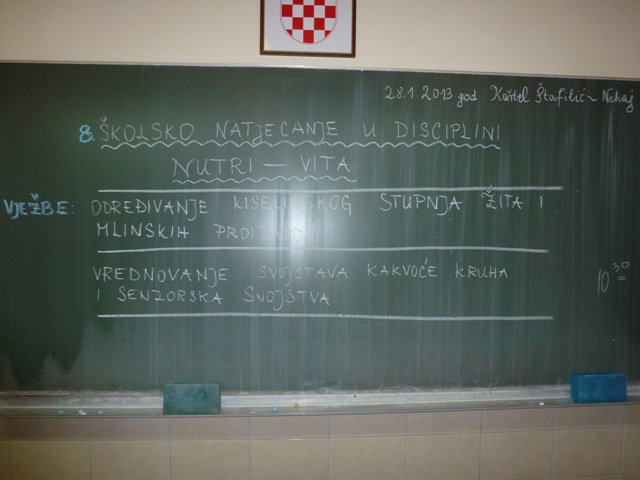 28.1 2013 god. Kaštel Štafilić - Nehaj
8. ŠKOLSKO NATJECANJE U DISCIPLINI
NUTRI – VITA
VJEŽBE: ODREĐIVANJE KISELINSKOG STUPNJA ŽITA I
MLINSKIH PROIZVODA
VREDNOVANJE SVOJSTAVA KAKVOĆE KRUHA
I SENZORSKA SVOJSTVA
10 30